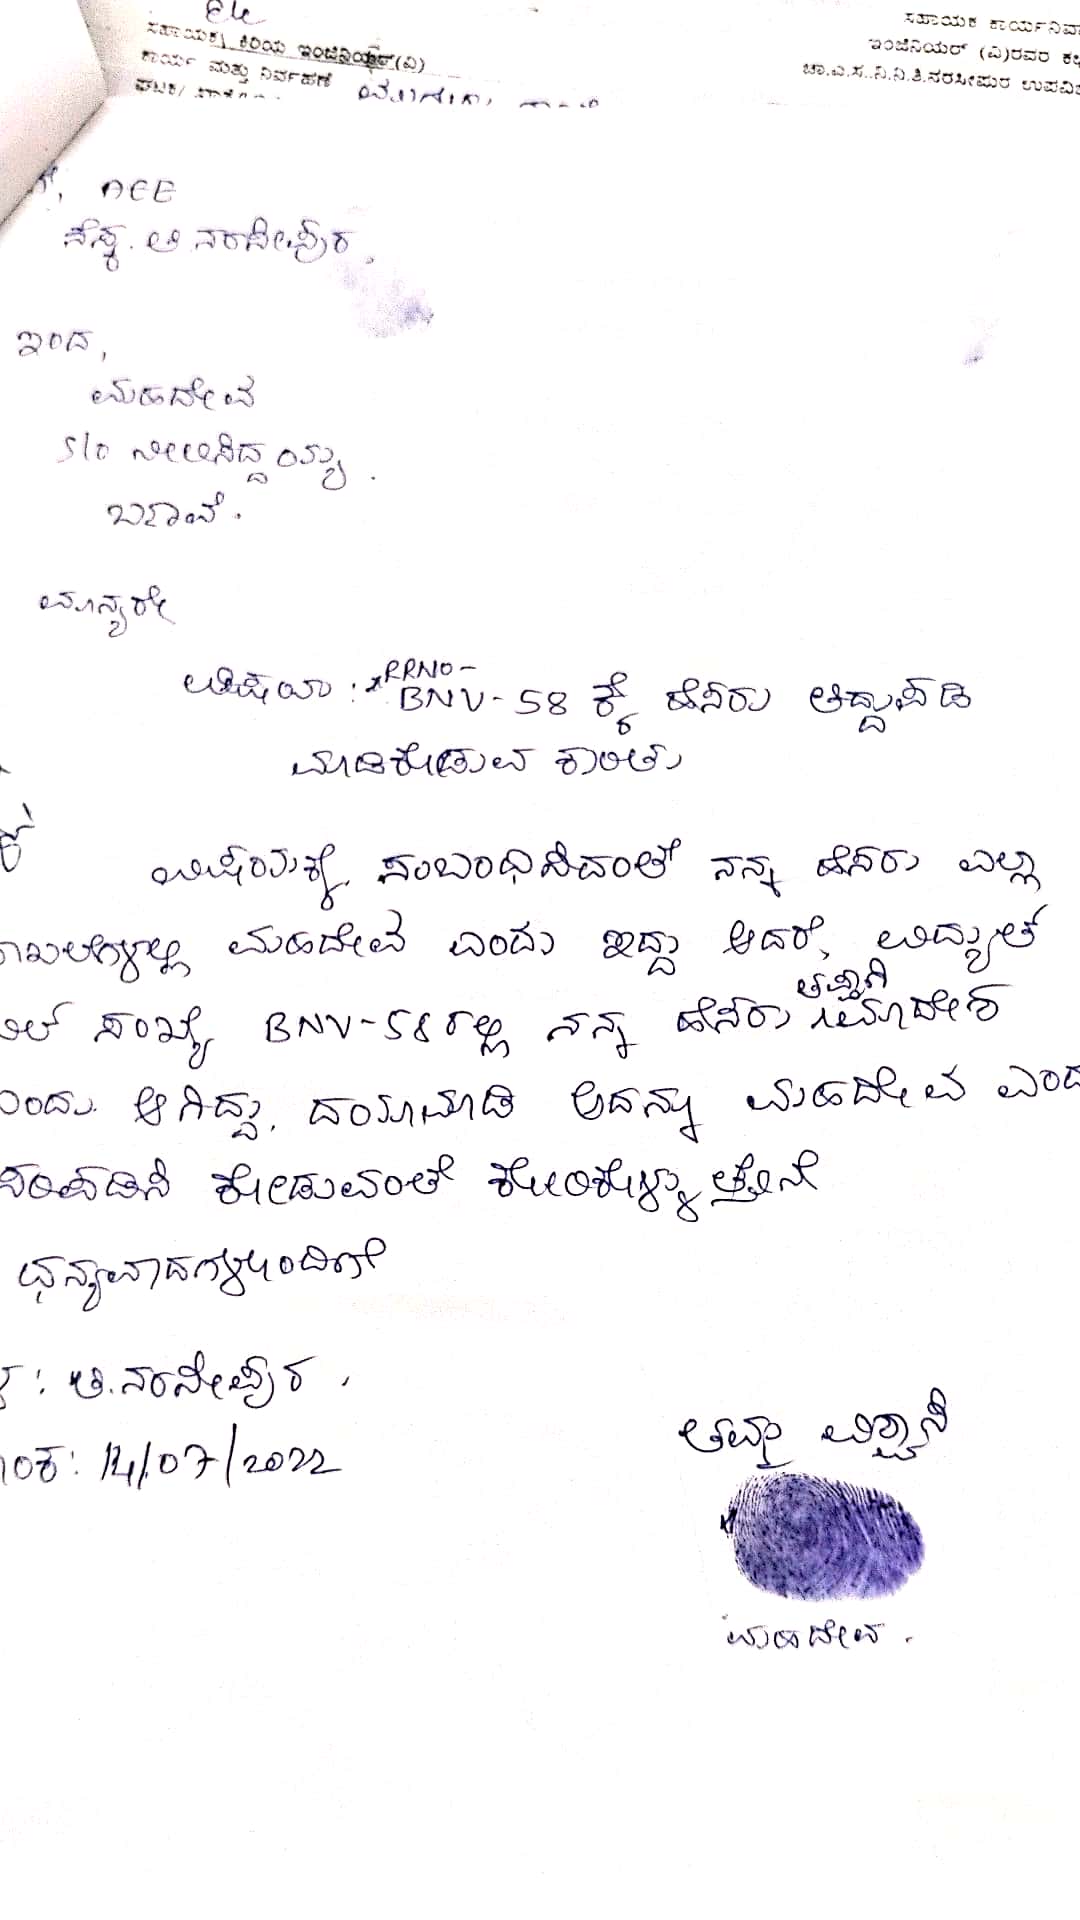 ಸಹಾಯಕ/ ಕಿರಿಯ ಇಂಜಿನಿಯರ್(ವಿ)
ಕಾರ್ಯ ಮತ್ತು ನಿರ್ವಹಣೆ
ಘಟಕ/
ಸಹಾಯಕ ಕಾರ್ಯನಿರ್ವಾ
ಇಂಜಿನಿಯರ್ (ವಿ)ರವರ ಕಛೇ
ಚಾ.ವಿ.ಸ.ನಿ.ನಿ.ತಿ.ನರಸೀಪುರ ಉಪವಿ
AEE
ಸೆಸ್ಕ. ತಿ ನರಸೀಪುರ,
ಇಂದ,
ಮಹದೇವ
S/o ನೀಲಿಸಿದ್ದಯ್ಯ.
ಮಾನ್ಯರೇ
ವಿಷಯ : RRNO-
BNV-58 ಕ್ಕೆ ಹೆಸರು ತಿದ್ದುಪಡಿ
ಮಾಡಿಕೊಡುವ ಕುರಿತು
ವಿಷಯಕ್ಕೆ ಸಂಬಂಧಿಸಿದಂತೆ ನನ್ನ ಹೆಸರು ಎಲ್ಲಾ
ಾಖಲೆಗಳಲ್ಲಿ ಮಹದೇವ ಎಂದು ಇದ್ದು ಆದರೆ, ವಿದ್ಯುತ್
ಬಿಲ್ ಸಂಖ್ಯೆ BNV-58 ರಲ್ಲಿ ನನ್ನ ಹೆಸರು ತಪ್ಪಾಗಿ ಮಾದೇಶ
ಎಂದು ಆಗಿದ್ದು, ದಯಮಾಡಿ ಅದನ್ನು ಮಹದೇವ ಎಂದು
ಸರಿಪಡಿಸಿ ಕೊಡುವಂತೆ ಕೋರಿಕೊಳ್ಳುತ್ತೇನೆ
ಧನ್ಯವಾದಗಳೊಂದಿಗೆ
ಳ : ತಿ.ನರಸೀಪುರ.
ಾಂಕ: 14/07/2022
ತಮ್ಮ ವಿಶ್ವಾಸಿ
ಮಹದೇವ.